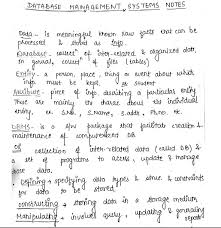 DATABASE MANAGEMENT SYSTEMS NOTES
Data - is meaningful known raw facts that can be
processed & stored as info.
Database - collectn of inter-related & organized data,
in general, collectn of files (tables)
Entity - a person, place, thing or event about which
info must be kept. student
Attribute - piece of info describing a particular entity
These are mainly the charac about the individual
entity, ex. S.No, S.name, S.addr, Ph.no. etc.
DBMS - is a s/w package that facilitate creation &
maintenance of computerised DB
OR
collection of inter-related data (called DB) &
a set of programs to access, update & manage
those data.
Defining - specifying data types & struc. & constraints
for data to be stored.
Constructing - storing data in a storage medium
Manipulating - involves query, updating & generating
reports